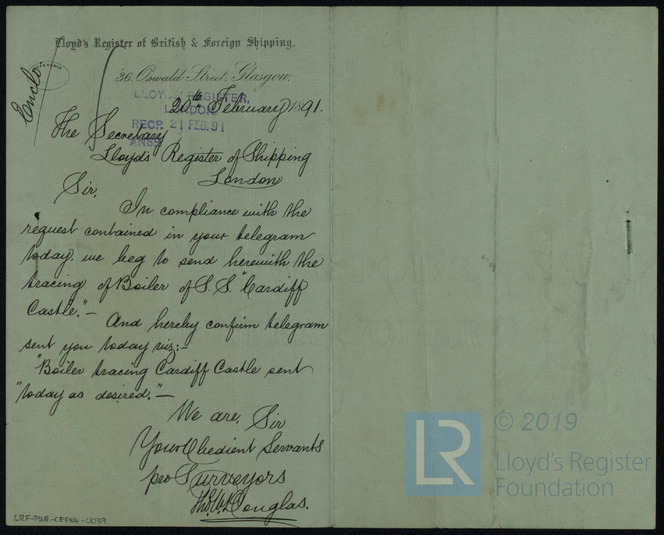 Lloyd's Register of British & Foreign Shipping.
36, Oswald Street, Glasgow.
Enclo
20th February 1891.
LLOYD'S REGISTER,
LONDON.
RECD. 21 FEB. 91
ANSD.
The Secretary
Lloyds Register of Shipping
London
Sir,
In compliance with the
request contained in your telegram
today, we beg to send herewith the
tracing of Boiler of S.S. "Cardiff
Castle."—
And hereby confirm telegram
sent you today viz:—
"Boiler tracing Cardiff Castle sent
"today as desired."—
We are, Sir
Your Obedient Servants
pro Surveyors
Douglas.
LRF-PUN-
-0039
LR
© 2019
Lloyd's Register
Foundation